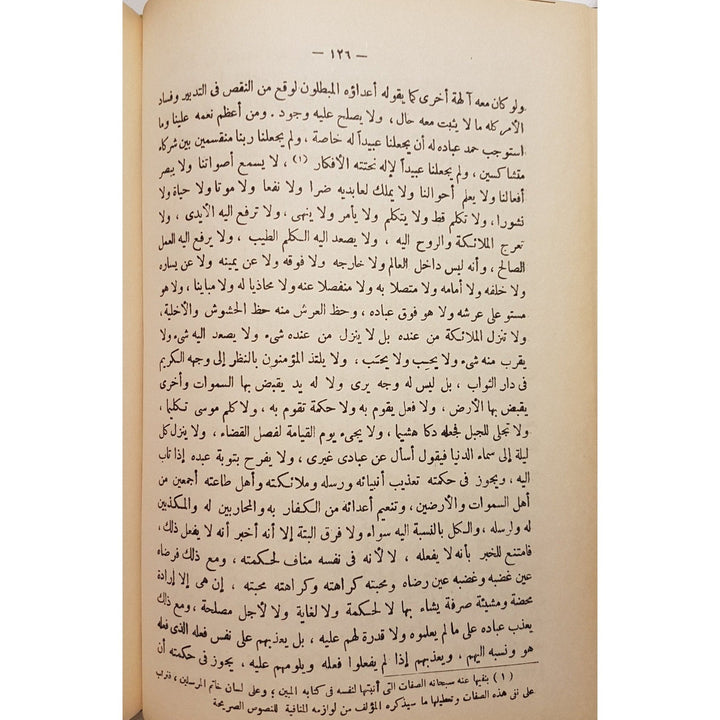 — ١٢٦ —
ولو كان معه آلهة أخرى كما يقوله أعداؤه المبطلون لوقع من النقص فى التدبير وفساد
الأمر كله ما لا يثبت معه حال ، ولا يصلح عليه وجود . ومن أعظم نعمه علينا وما
استوجب حمد عباده له أن يجعلنا عبيداً له خاصة ، ولم يجعلنا ربنا منقسمين بين شركاء
متشاكسين ، ولم يجعلنا عبيداً لإله نحتته الأفكار (١) ، لا يسمع أصواتنا ولا يبصر
أفعالنا ولا يعلم أحوالنا ولا يملك لعابديه ضرا ولا نفعا ولا موتا ولا حياة ولا
نشورا ، ولا تكلم قط ولا يتكلم ولا يأمر ولا ينهى ، ولا ترفع اليه الأيدى ، ولا
تعرج الملائكة والروح اليه ، ولا يصعد اليه الكلم الطيب ، ولا يرفع اليه العمل
الصالح ، وأنه ليس داخل العالم ولا خارجه ولا فوقه ولا عن يمينه ولا عن يساره
ولا خلفه ولا أمامه ولا متصلا به ولا منفصلا عنه ولا محاذيا له ولا مباينا ، ولا هو
مستو على عرشه ولا هو فوق عباده ، وحظ العرش منه حظ الحشوش والأخلية،
ولا تنزل الملائكة من عنده بل لا ينزل من عنده شىء ولا يصعد اليه شىء ولا
يقرب منه شىء ولا يحِب ولا يحَب ، ولا يلتذ المؤمنون بالنظر إلى وجهه الكريم
فى دار الثواب ، بل ليس له وجه يرى ولا له يد يقبض بها السموات وأخرى
يقبض بها الأرض ، ولا فعل يقوم به ولا حكمة تقوم به ، ولا كلم موسى تكليما ،
ولا تجلى للجبل فجعله دكا هشيما ، ولا يجىء يوم القيامة لفصل القضاء ، ولا ينزل كل
ليلة إلى سماء الدنيا فيقول أسأل عن عبادى غيرى ، ولا يفرح بتوبة عبده إذا تاب
اليه ، ويجوز فى حكمته تعذيب أنبيائه ورسله وملائكته وأهل طاعته أجمعين من
أهل السموات والأرضين ، وتنعيم أعدائه من الكفار به والمحاربين له والمكذبين
له ولرسله ، والكل بالنسبة اليه سواء ولا فرق البتة إلا أنه أخبر أنه لا يفعل ذلك،
فامتنع للخبر بأنه لا يفعله ، لا لأنه فى نفسه مناف لحكمته ، ومع ذلك فرضاه
عين غضبه وغضبه عين رضاه ومحبته كراهته وكراهته محبته ، إن هى إلا إرادة
محضة ومشيئة صرفة يشاء بها لا لحكمة ولا لغاية ولا لأجل مصلحة ، ومع ذلك
يعذب عباده على ما لم يعلموه ولا قدرة لهم عليه ، بل يعذبهم على نفس فعله الذى فعله
هو ونسبه اليهم ، ويعذبهم إذا لم يفعلوا فعله ويلومهم عليه ، يجوز فى حكمته أن
(١) بنفيها عنه سبحانه الصفات التى أثبتها لنفسه فى كتابه المبين ؛ وعلى لسان خاتم المرسلين ، فترتب
على نفى هذه الصفات وتعطيلها ما سيذكره المؤلف من لوازمه المنافية للنصوص الصريحة